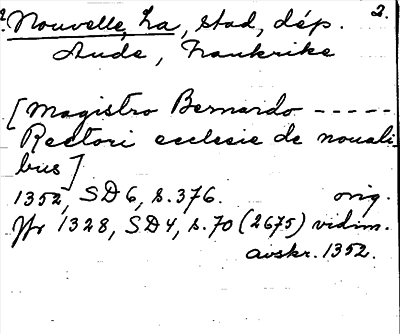 2.
Nouvelle, La, stad, dép.
Aude, Frankrike
[Magistro Bernardo -----
Rectori ecclesie de nouali
bus]
1352, SD 6, s. 376. orig.
Jfr 1328, SD 4, s. 70 (2675) vidim.
avskr. 1352.